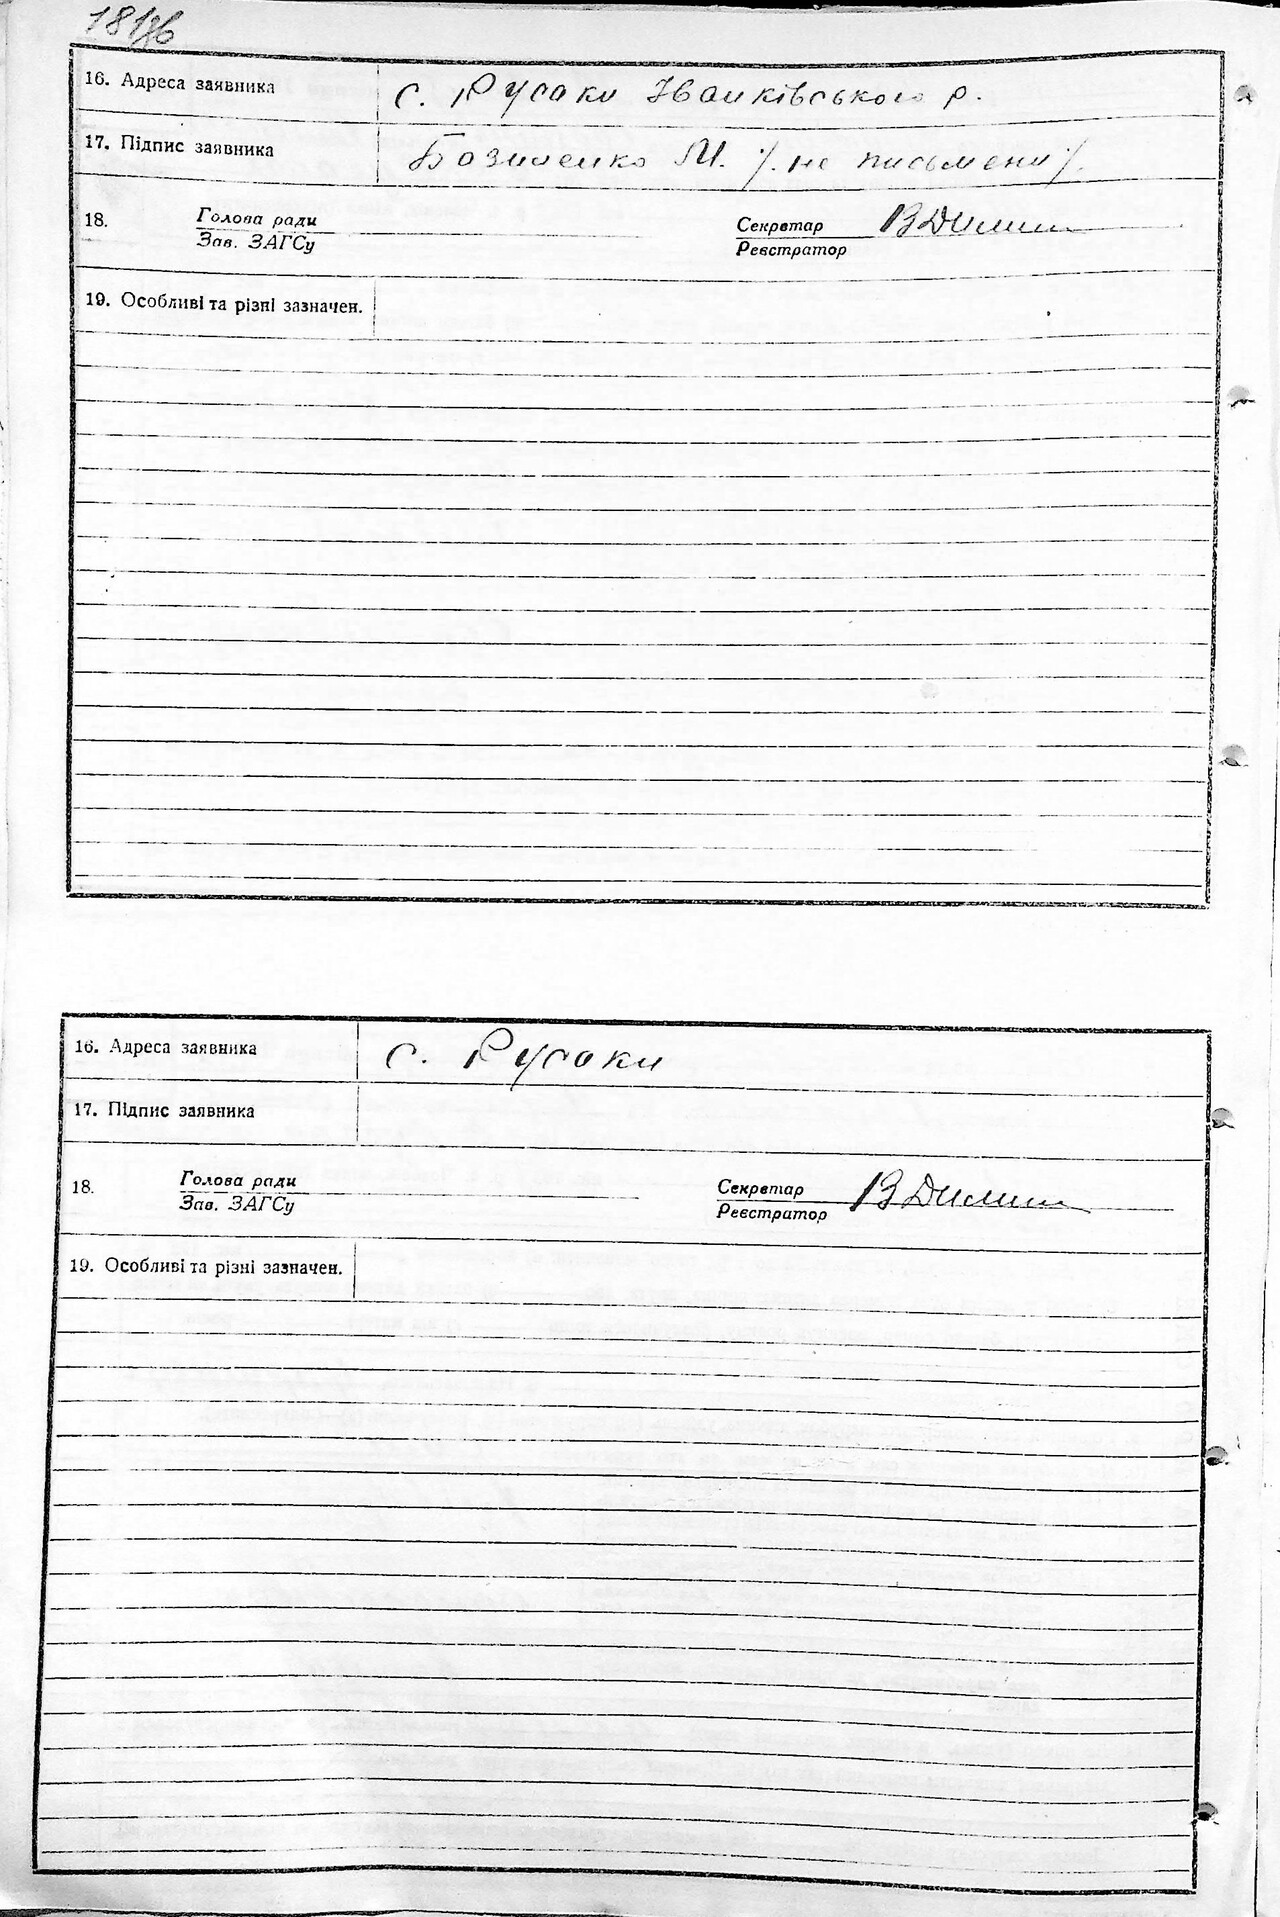 16. Адреса заявника с. Русаки Іванківського р.
17. Підпис заявника М. /. не письмени /.
18. Голова ради Секретар
Зав. ЗАГСу Реєстратор
19. Особливі та різні зазначен.
16. Адреса заявника с. Русаки
17. Підпис заявника
18. Голова ради Секретар
Зав. ЗАГСу Реєстратор
19. Особливі та різні зазначен.